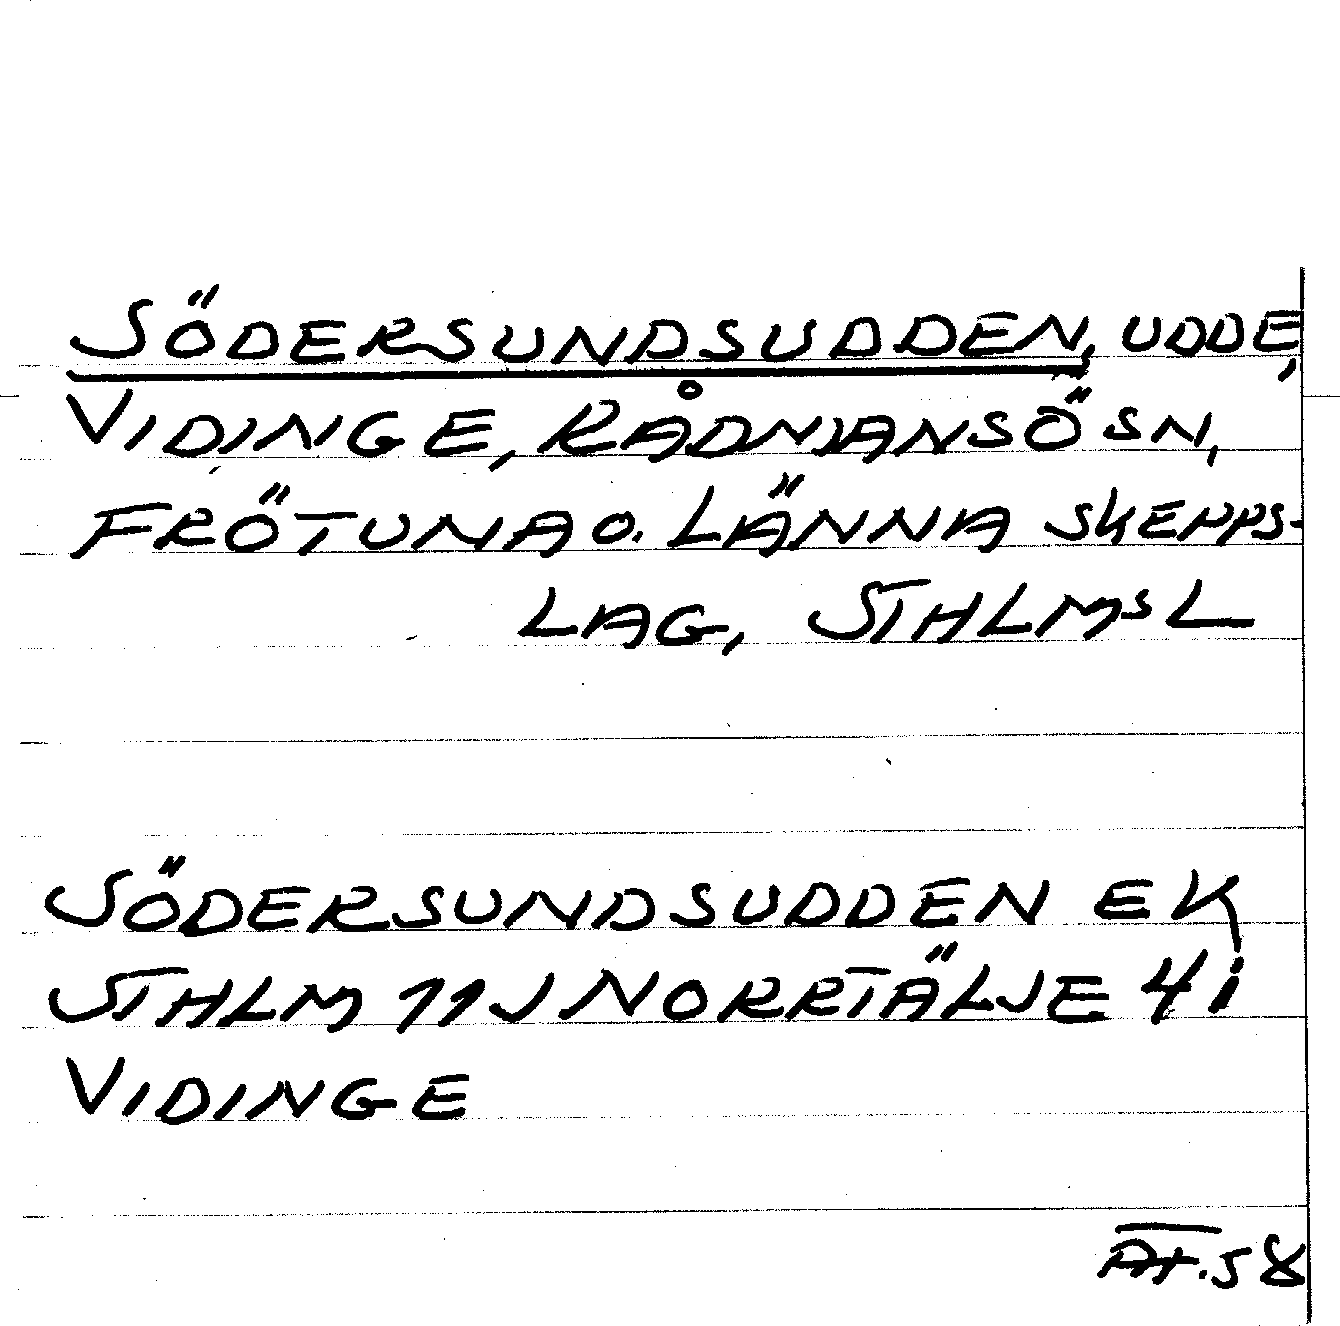 SÖDERSUNDSUDDEN, UDDE,
VIDINGE, RÅDMANSÖ SN,
FRÖTUNA O. LÄNNA SKEPPS-
LAG, STHLMS L
SÖDERSUNDSUDDEN EK
STHLM 11J NORRTÄLJE 4i
VIDINGE
58